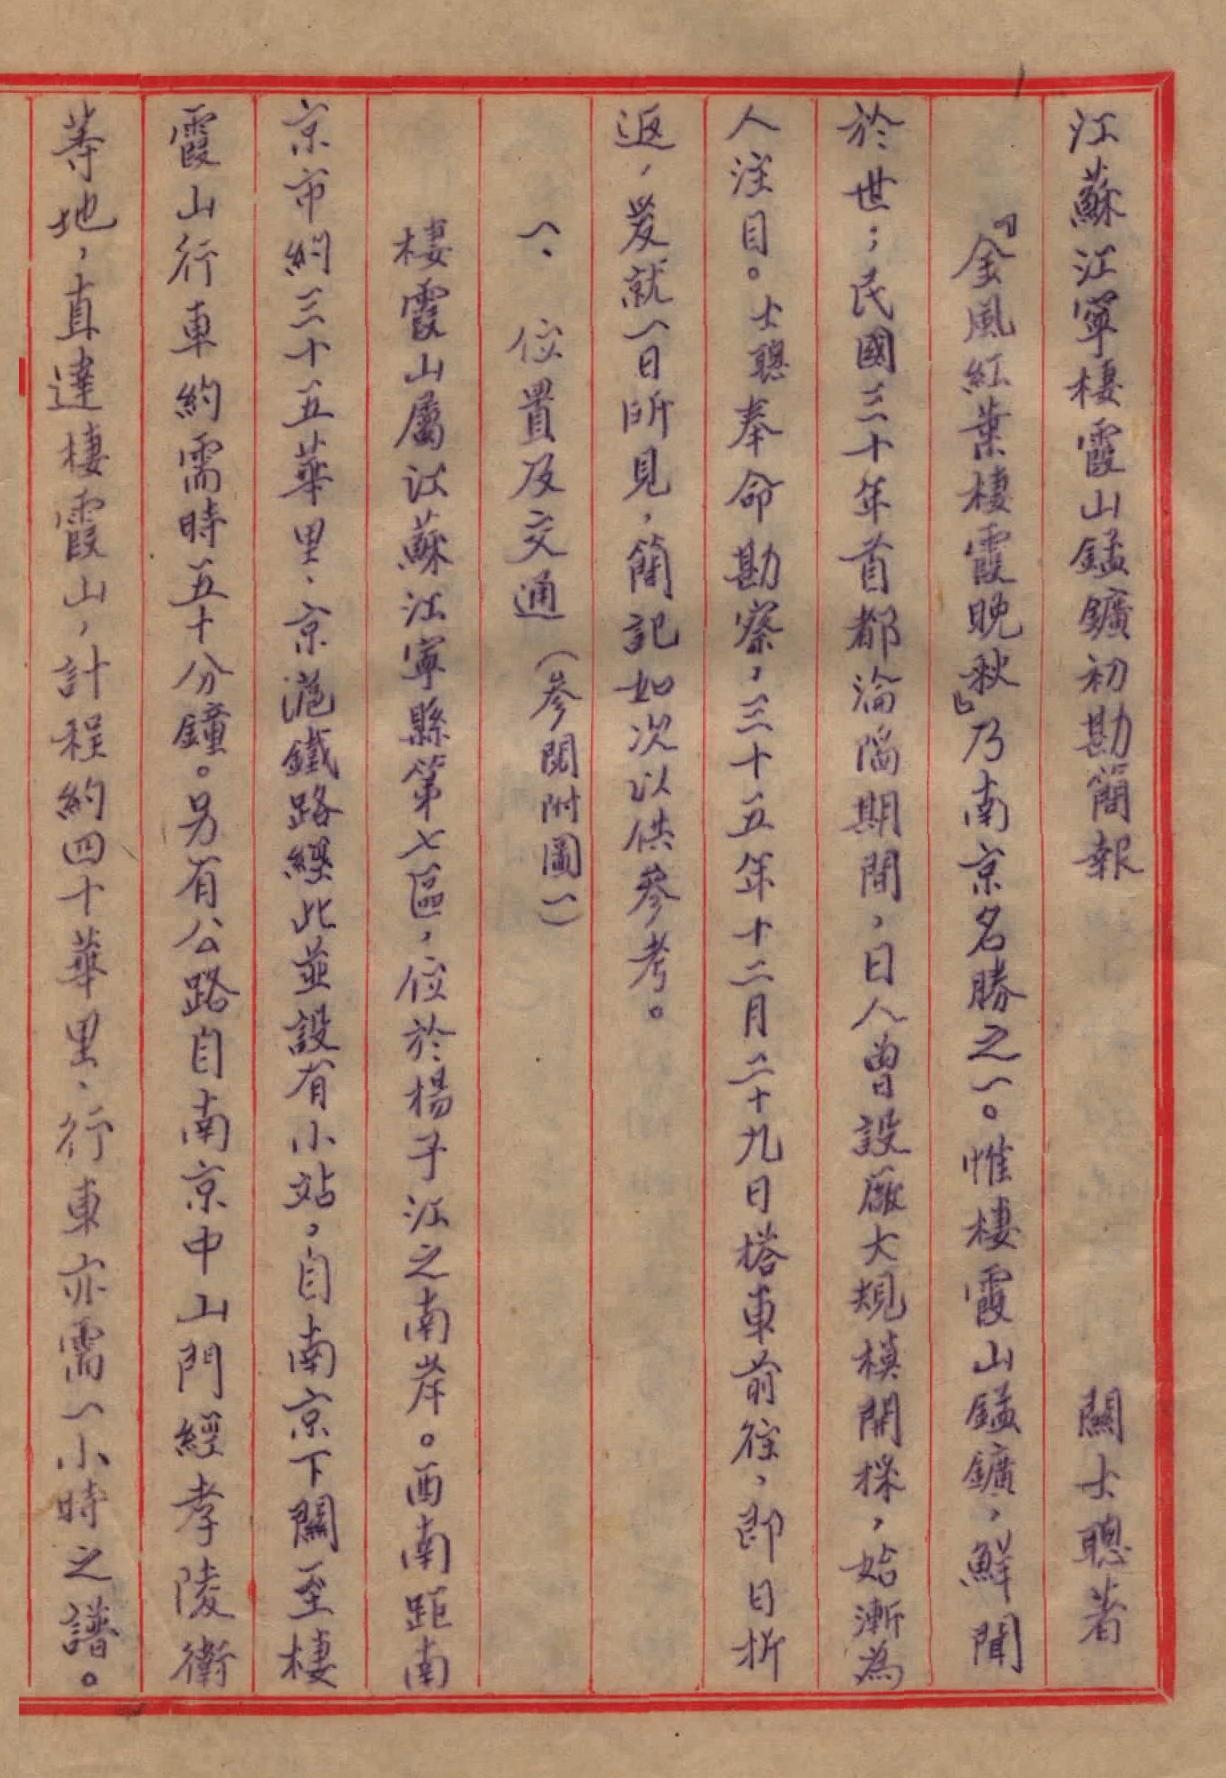 江蘇江寧棲霞山錳鑛初勘簡報 關士聰著
『金風紅葉棲霞晚秋』乃南京名勝之一。惟棲霞山錳鑛，鮮聞
於世；民國三十年首都淪陷期間，日人曾設廠大規模開採，始漸為
人注目。士聰奉命勘察，三十五年十二月二十九日搭車前往，即日折
返，爰就一日所見，簡記如次以供參考。
一、位置及交通（參閱附圖一）
棲霞山屬江蘇江寧縣第七區，位於楊子江之南岸。西南距南
京市約三十五華里、京滬鐵路經此並設有小站，自南京下關至棲
霞山行車約需時五十分鐘。另有公路自南京中山門經孝陵衛
等地，直達棲霞山，計程約四十華里、行車亦需一小時之譜。